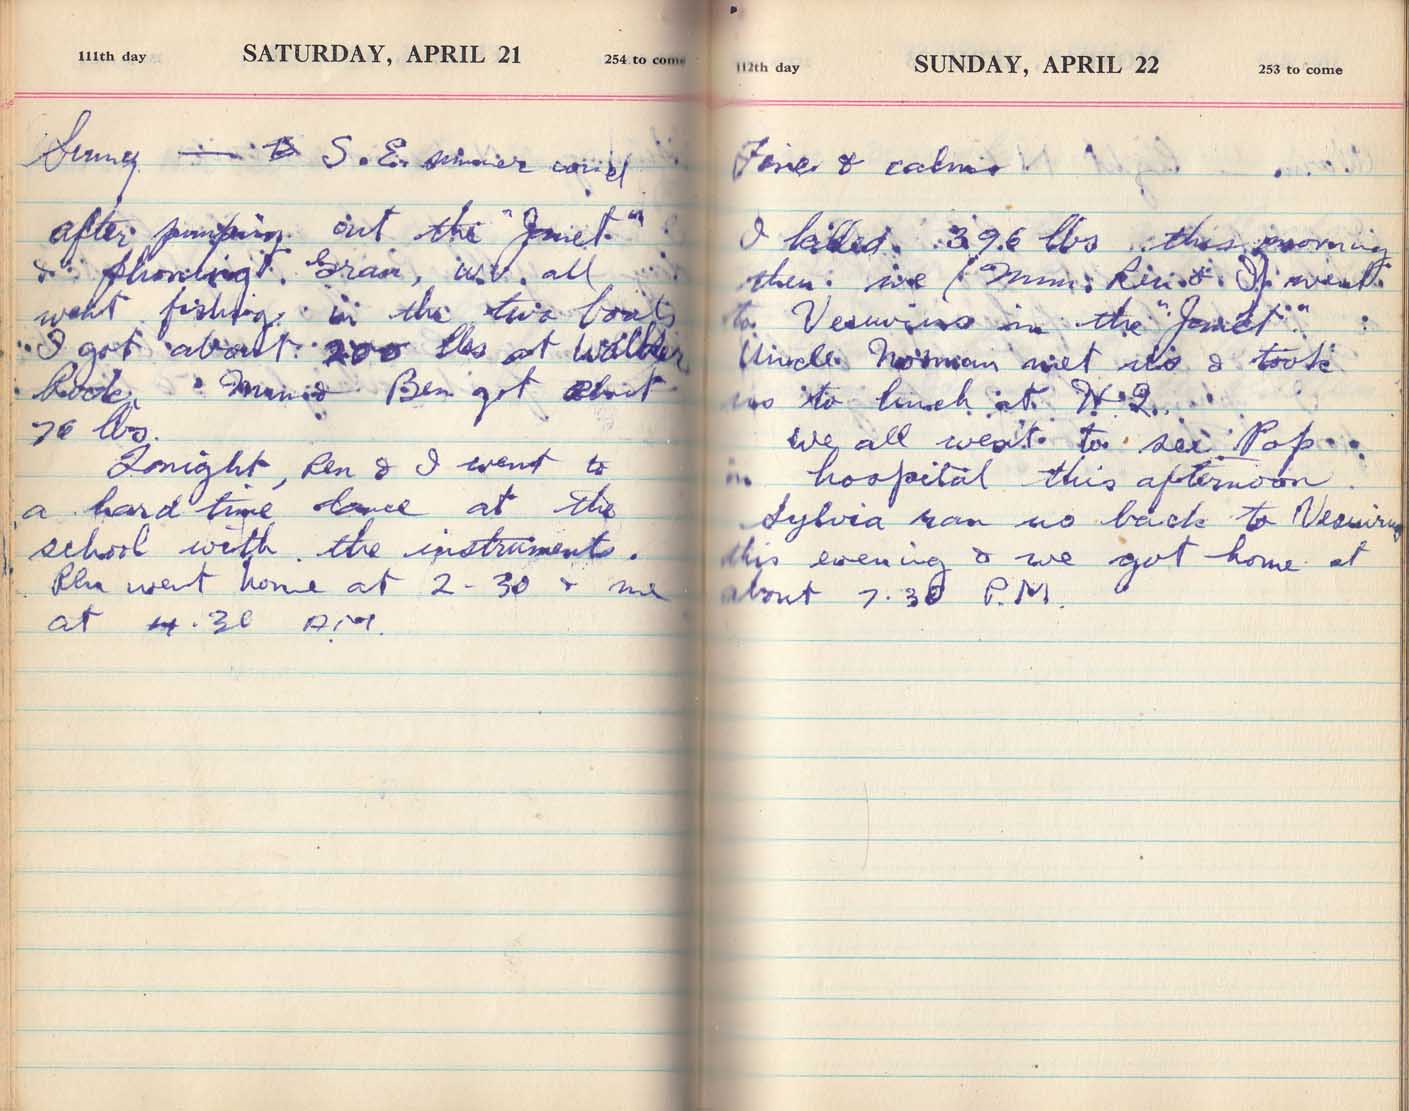 111th day SATURDAY, APRIL 21 254 to come
Sunny — S.E. wind
after pumping out the "Janet"
& phoning Gran, we all
went fishing in the two boats
I got about 200 lbs at Walker
Rock, Mum & Ben got about
76 lbs.
Tonight, Ren & I went to
a hard time dance at the
school with the instruments.
Ren went home at 2-30 & me
at 4.30 A.M.
112th day SUNDAY, APRIL 22 253 to come
Fine & calm
I killed 396 lbs this morning
then we (Mum, Ren & I) went
to Vesuvius in the "Janet"
Uncle Norman met us & took
us to lunch at H.Q.
we all went to see Pop
in hospital this afternoon.
Sylvia ran us back to Vesuvius
this evening & we got home at
about 7.30 P.M.